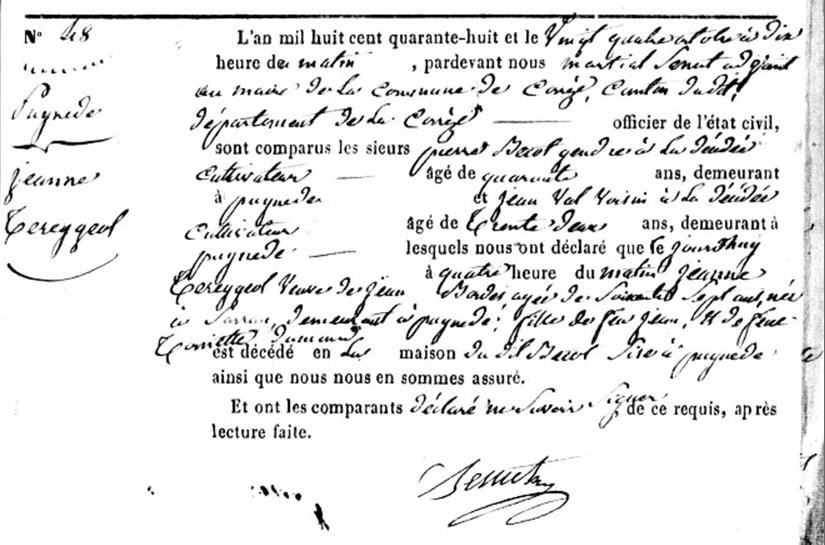 N° 48
Puynede
Jeanne
Tereygeol
L'an mil huit cent quarante-huit et le Vingt quatre octobre à dix
heure du matin , pardevant nous martial Senut adjoint
au maire de La Commune de Corrèze, Canton dudit,
département de La Corrèze officier de l'état civil,
sont comparus les sieurs pierre Becol gendre à La décédée
cultivateur âgé de quarante ans, demeurant
à puynede et jean Val Voisin à La décédée
cultivateur âgé de Trente deux ans, demeurant à
puynede lesquels nous ont déclaré que le jourdhuy
à quatre heure du matin jeanne
Tereygeol Veuve de jean Bordes agée de Soixante Sept ans, née
à Sarran, demeurant à puynede; fille de feu jean, et de feue
est décédé en La maison du dit Becol Sise à puynede
ainsi que nous nous en sommes assuré.
Et ont les comparants déclaré ne Savoir Signer de ce requis, après
lecture faite.